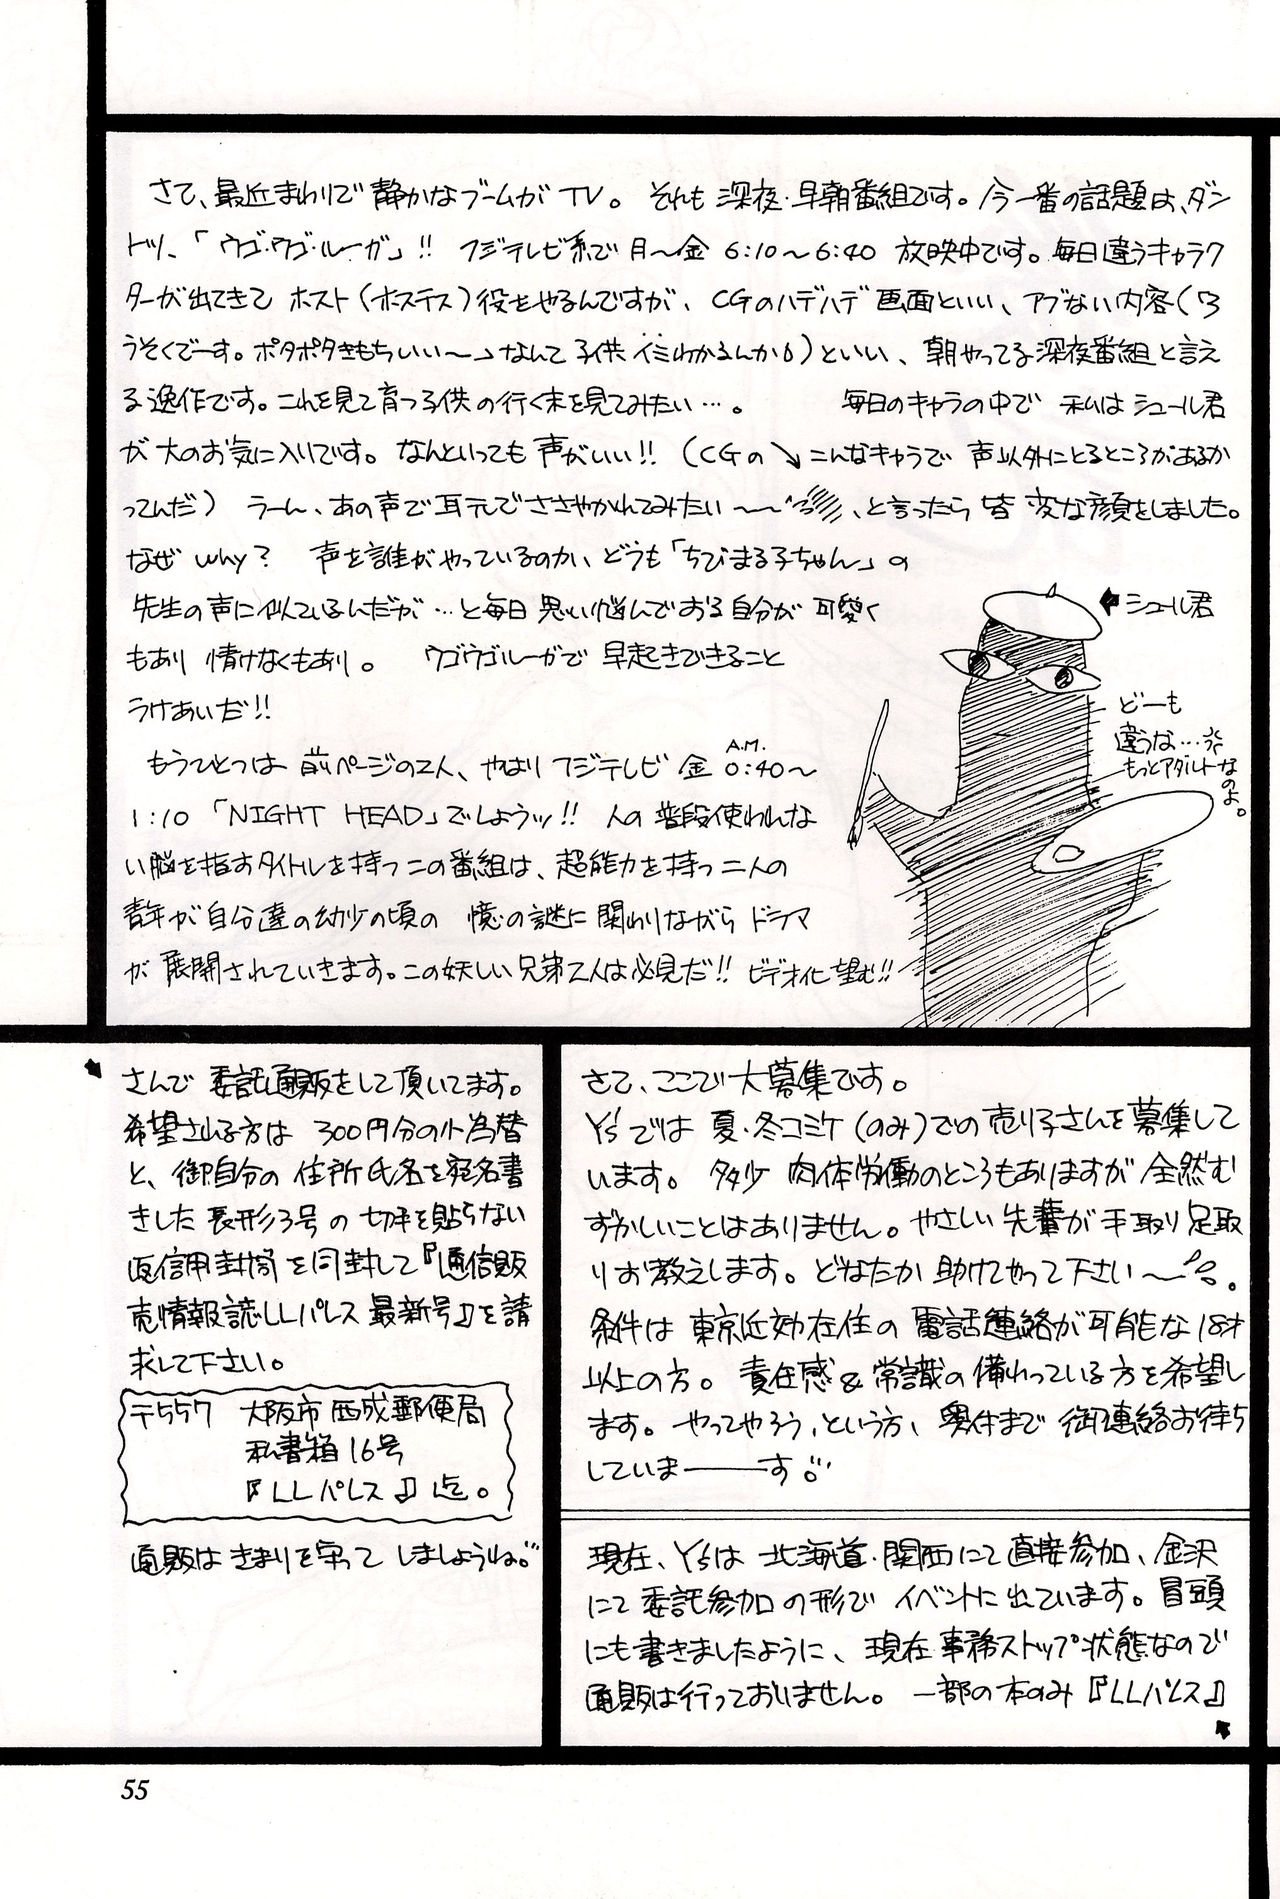 さて、最近まわりで静かなブームがTV。それも深夜・早朝番組です。今一番の話題は、ダン
トツ、「ウゴ・ウゴ・ルーガ」!! フジテレビ系で月〜金 6:10〜6:40 放映中です。毎日違うキャラク
ターが出てきて ホスト(ホステス)役をやるんですが、CGのハデハデ画面といい、アブない内容(ろ
うそくでーす。ポタポタきもちいい〜なんて子供イミわかるんか)といい、朝やってる深夜番組と言え
る逸作です。これを見て育つ子供の行く末を見てみたい…。 毎日のキャラの中で 私はシュール君
が大のお気に入りです。なんといっても声がいい!! (CGの↘こんなキャラで声以外にとるところがあるか
ってんだ) うーん、あの声で耳元でささやかれてみたい〜〜、と言ったら皆変な顔をしました。
なぜ why? 声を誰がやっているのか、どうも「ちびまる子ちゃん」の
先生の声に似ているんだが…と毎日思い悩んでおる自分が可愛く
もあり 情けなくもあり。 ウゴウゴルーガで 早起きできること
うけあいだ!!
もうひとつは 前ページの2人、やはりフジテレビ 金 A.M. 0:40〜
1:10「NIGHT HEAD」でしょうッ!! 人の普段使われな
い脳を指すタイトルを持つこの番組は、超能力を持つ二人の
青年が自分達の幼少の頃の 憶の謎に関わりながらドラマ
が展開されていきます。この妖しい兄弟2人は必見だ!! ビデオ化望む!!
←シュール君
どーも
違うな…
もっとアダルトなのよ。
さんで委託通販をして頂いてます。
希望される方は 300円分の小為替
と、御自分の住所氏名を宛名書
きした長形3号の切手を貼らない
返信用封筒を同封して『通信販
売情報誌LLパレス最新号』を請
求して下さい。
〒557 大阪市西成郵便局
私書箱16号
『LLパレス』迄。
通販はきまりを守ってしましょうね。
さて、ここで大募集です。
Y'sでは夏・冬コミケ(のみ)での売り子さんを募集して
います。多少 肉体労働のところもありますが全然む
ずかしいことはありません。やさしい先輩が手取り足取
りお教えします。どなたか助けてやって下さい〜。
条件は東京近効在住の電話連絡が可能な18才
以上の方。責任感&常識の備わっている方を希望し
ます。やってやろう、という方、奥付まで御連絡お待ち
していまーーす
現在、Y'sは北海道・関西にて直接参加、金沢
にて委託参加の形でイベントに出ています。冒頭
にも書きましたように、現在事務ストップ状態なので
通販は行っておりません。一部の本のみ『LLパレス』
55